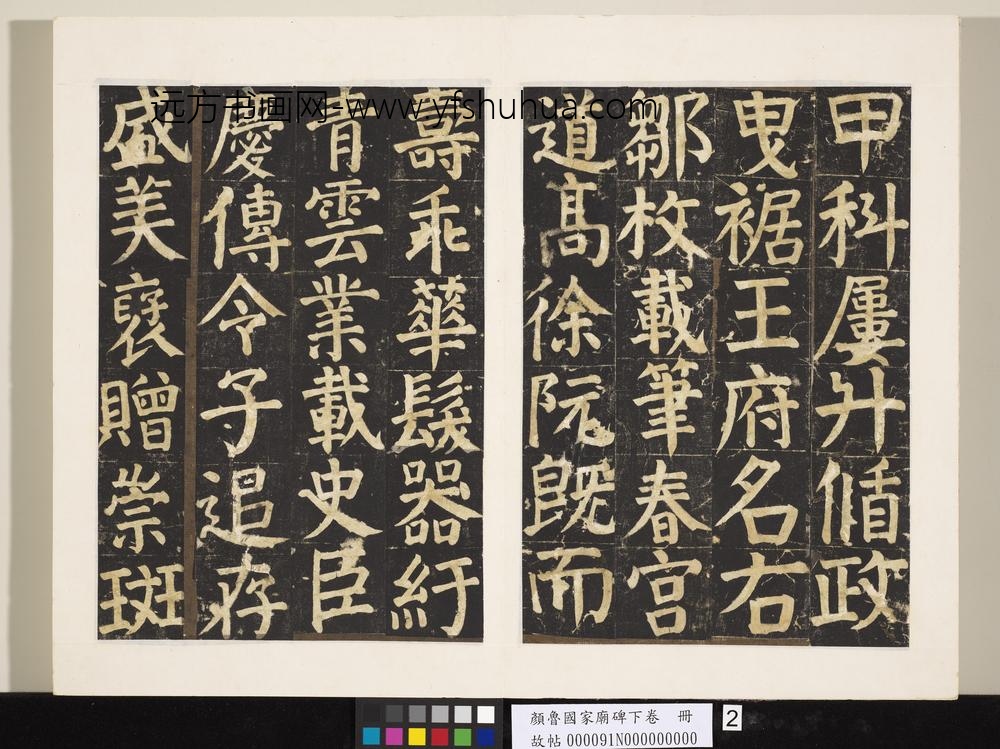 远方书画网-www.yfshuhua.com
甲科屢升偱政
曳裾王府名右
鄒枚載筆春宮
道髙徐阮既而
壽乖華髮器紆
青雲業載史臣
慶傳令子追存
盛美襃贈崇斑
顏魯國家廟碑下卷 冊
故帖 000091N000000000
2